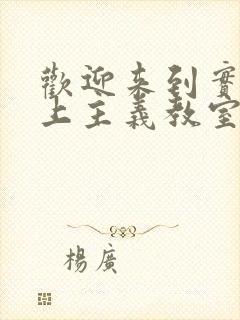 歡迎來到實
上主義教室
楊廣